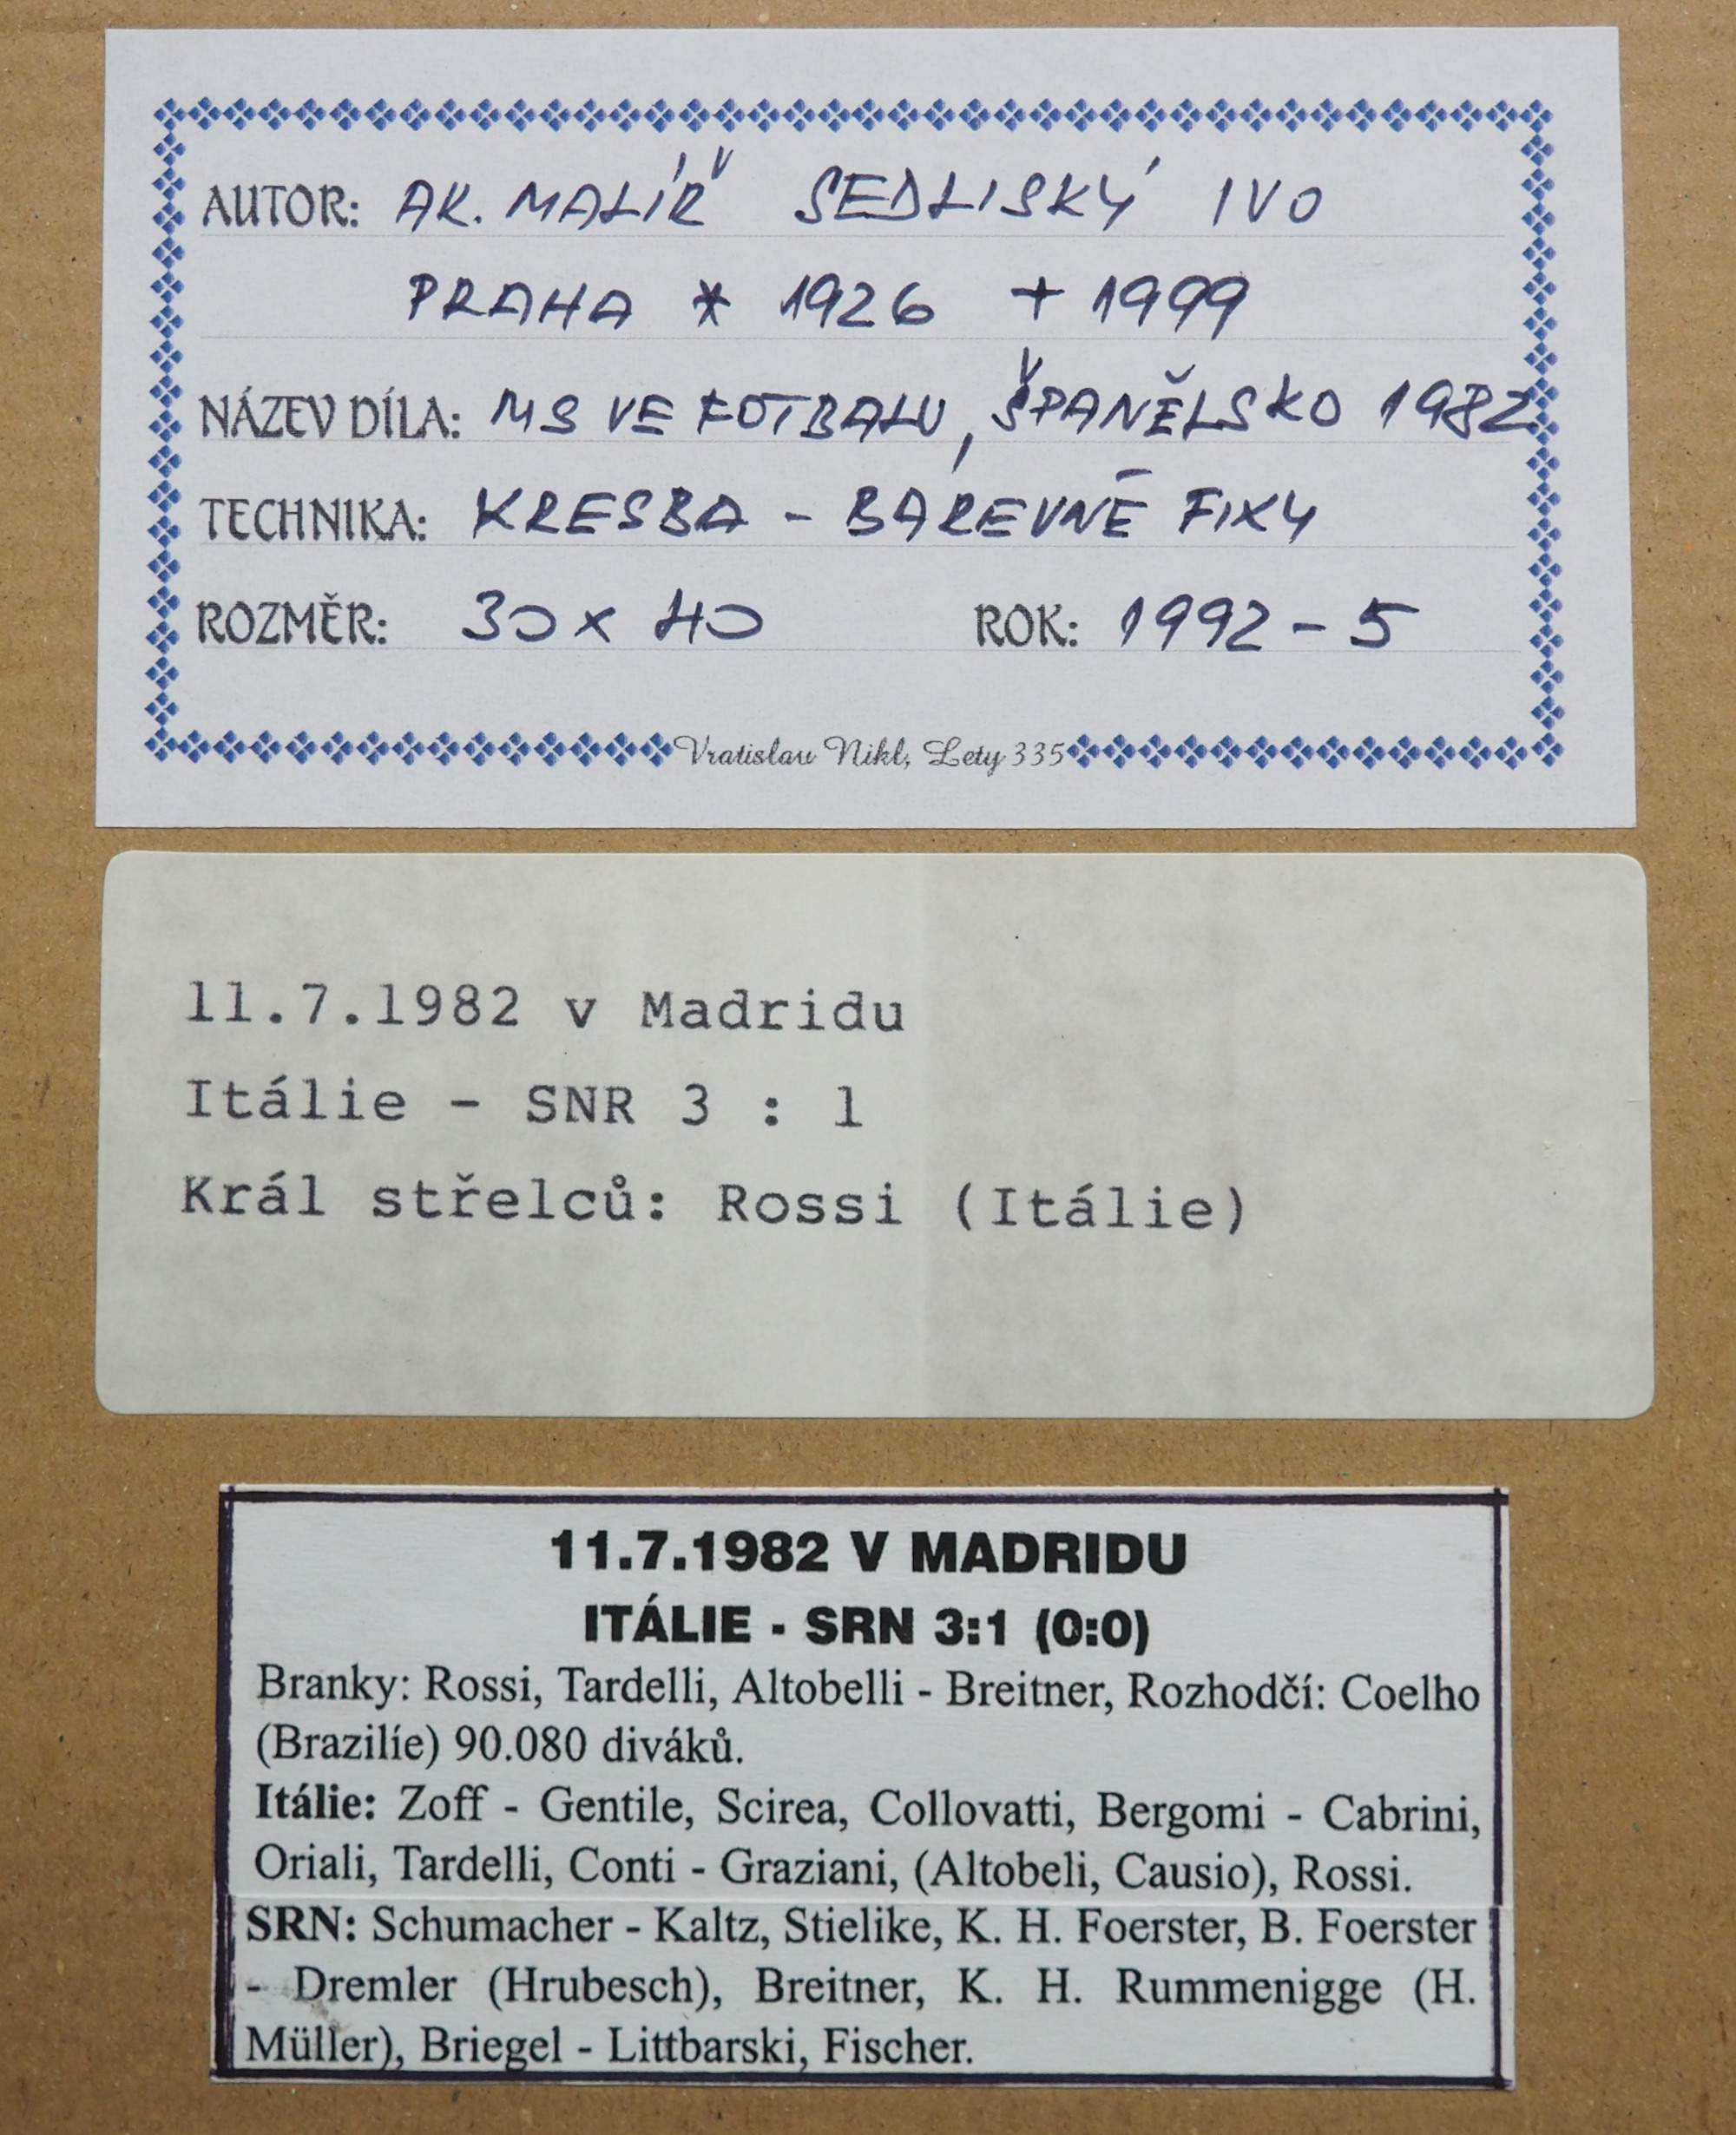 AUTOR: AK. MALÍŘ SEDLISKÝ IVO
PRAHA * 1926 + 1999
NÁZEV DÍLA: MS VE FOTBALU, ŠPANĚLSKO 1982
TECHNIKA: KRESBA - BAREVNÉ FIXY
ROZMĚR: 30 x 40 ROK: 1992 - 5
Vratislav Nikl, Lety 335
11.7.1982 v Madridu
Itálie - SNR 3 : 1
Král střelců: Rossi (Itálie)
11.7.1982 V MADRIDU
ITÁLIE - SRN 3:1 (0:0)
Branky: Rossi, Tardelli, Altobelli - Breitner, Rozhodčí: Coelho
(Brazilíe) 90.080 diváků.
Itálie: Zoff - Gentile, Scirea, Collovatti, Bergomi - Cabrini,
Oriali, Tardelli, Conti - Graziani, (Altobeli, Causio), Rossi.
SRN: Schumacher - Kaltz, Stielike, K. H. Foerster, B. Foerster
- Dremler (Hrubesch), Breitner, K. H. Rummenigge (H.
Müller), Briegel - Littbarski, Fischer.